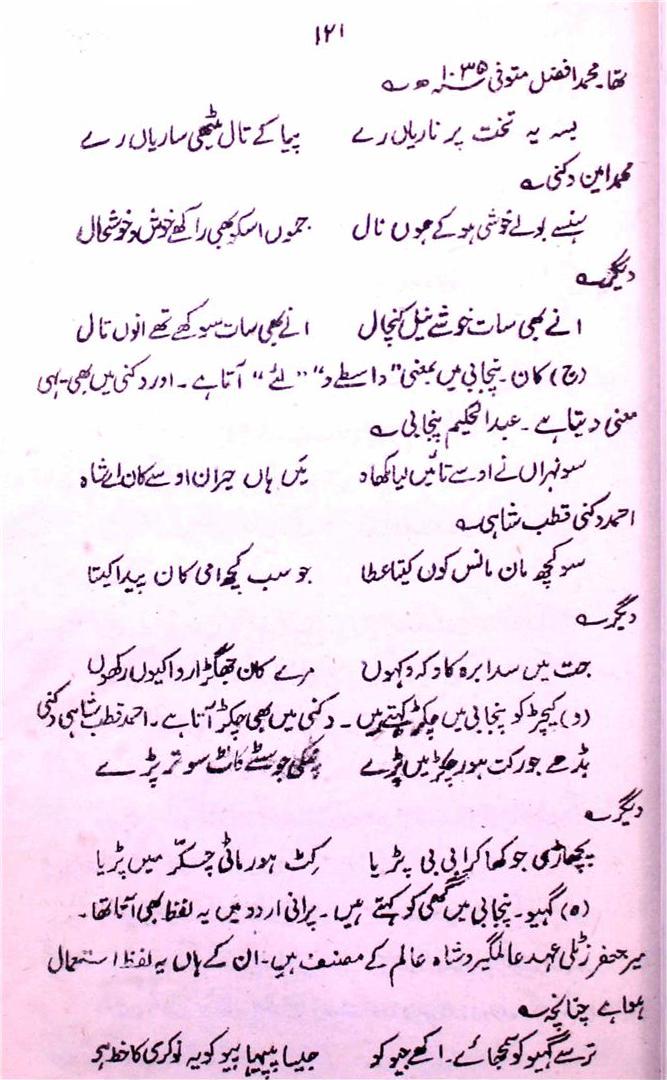 ۱۲۱
تھا۔ محمد افضل متوفی ۱۰۳۵ھ ؎
بسہ یہ تخت پر ناریاں رے پیا کے نال بیٹھی ساریاں رے
محمد امین دکنی ؎
ہنسے بولے خوشی ہو کے ہوں نال جموں اسکو بھی راکھے خوش و خوشحال
دیگر ؎
انے بھی سات خوشے نیل کنچال انے بھی سات سوکھے تھے انوں نال
(ج) کان۔ پنجابی میں بمعنی "واسطے و" "لئے" آتا ہے۔ اور دکنی میں بھی یہی
معنی دیتا ہے۔ عبدالحکیم پنجابی ؎
سونہراں نے اوسے تائیں لیا کھاہ میں ہاں حیران اوسے کان اے شاہ
احمد دکنی قطب شاہی ؎
سو کچھ مان مانس کوں کیتا عطا جو سب کچھ اسی کان پیدا کیتا
دیگر ؎
جت میں سدا برہ کا دکھ دکہوں مرے کان جھگڑا روا کیوں رکھوں
(د) کیچڑ کو پنجابی میں چکڑ کہتے ہیں۔ دکنی میں بھی چکڑ آتا ہے۔ احمد قطب شاہی دکنی
بڈھے جو رکت ہور چکڑ میں پڑے جو سٹے کاٹ سو تر پڑے
دیگر ؎
پچھاڑی جو کھا کر ابی بی پڑیا کٹ ہور ماٹی چکر میں پڑیا
(ہ) گہیو۔ پنجابی میں گھی کو کہتے ہیں۔ پرانی اردو میں یہ لفظ بھی آتا تھا۔
میر جعفر زٹلی عہد عالمگیر و شاہ عالم کے مصنف ہیں۔ ان کے ہاں یہ لفظ استعمال
ہوا ہے چنانچہ ؎
ترسے گہیو کو سمجھائے۔ اکھے جیو کو جیسا پپیہا پیو کو یہ نوکری کا خط ہی